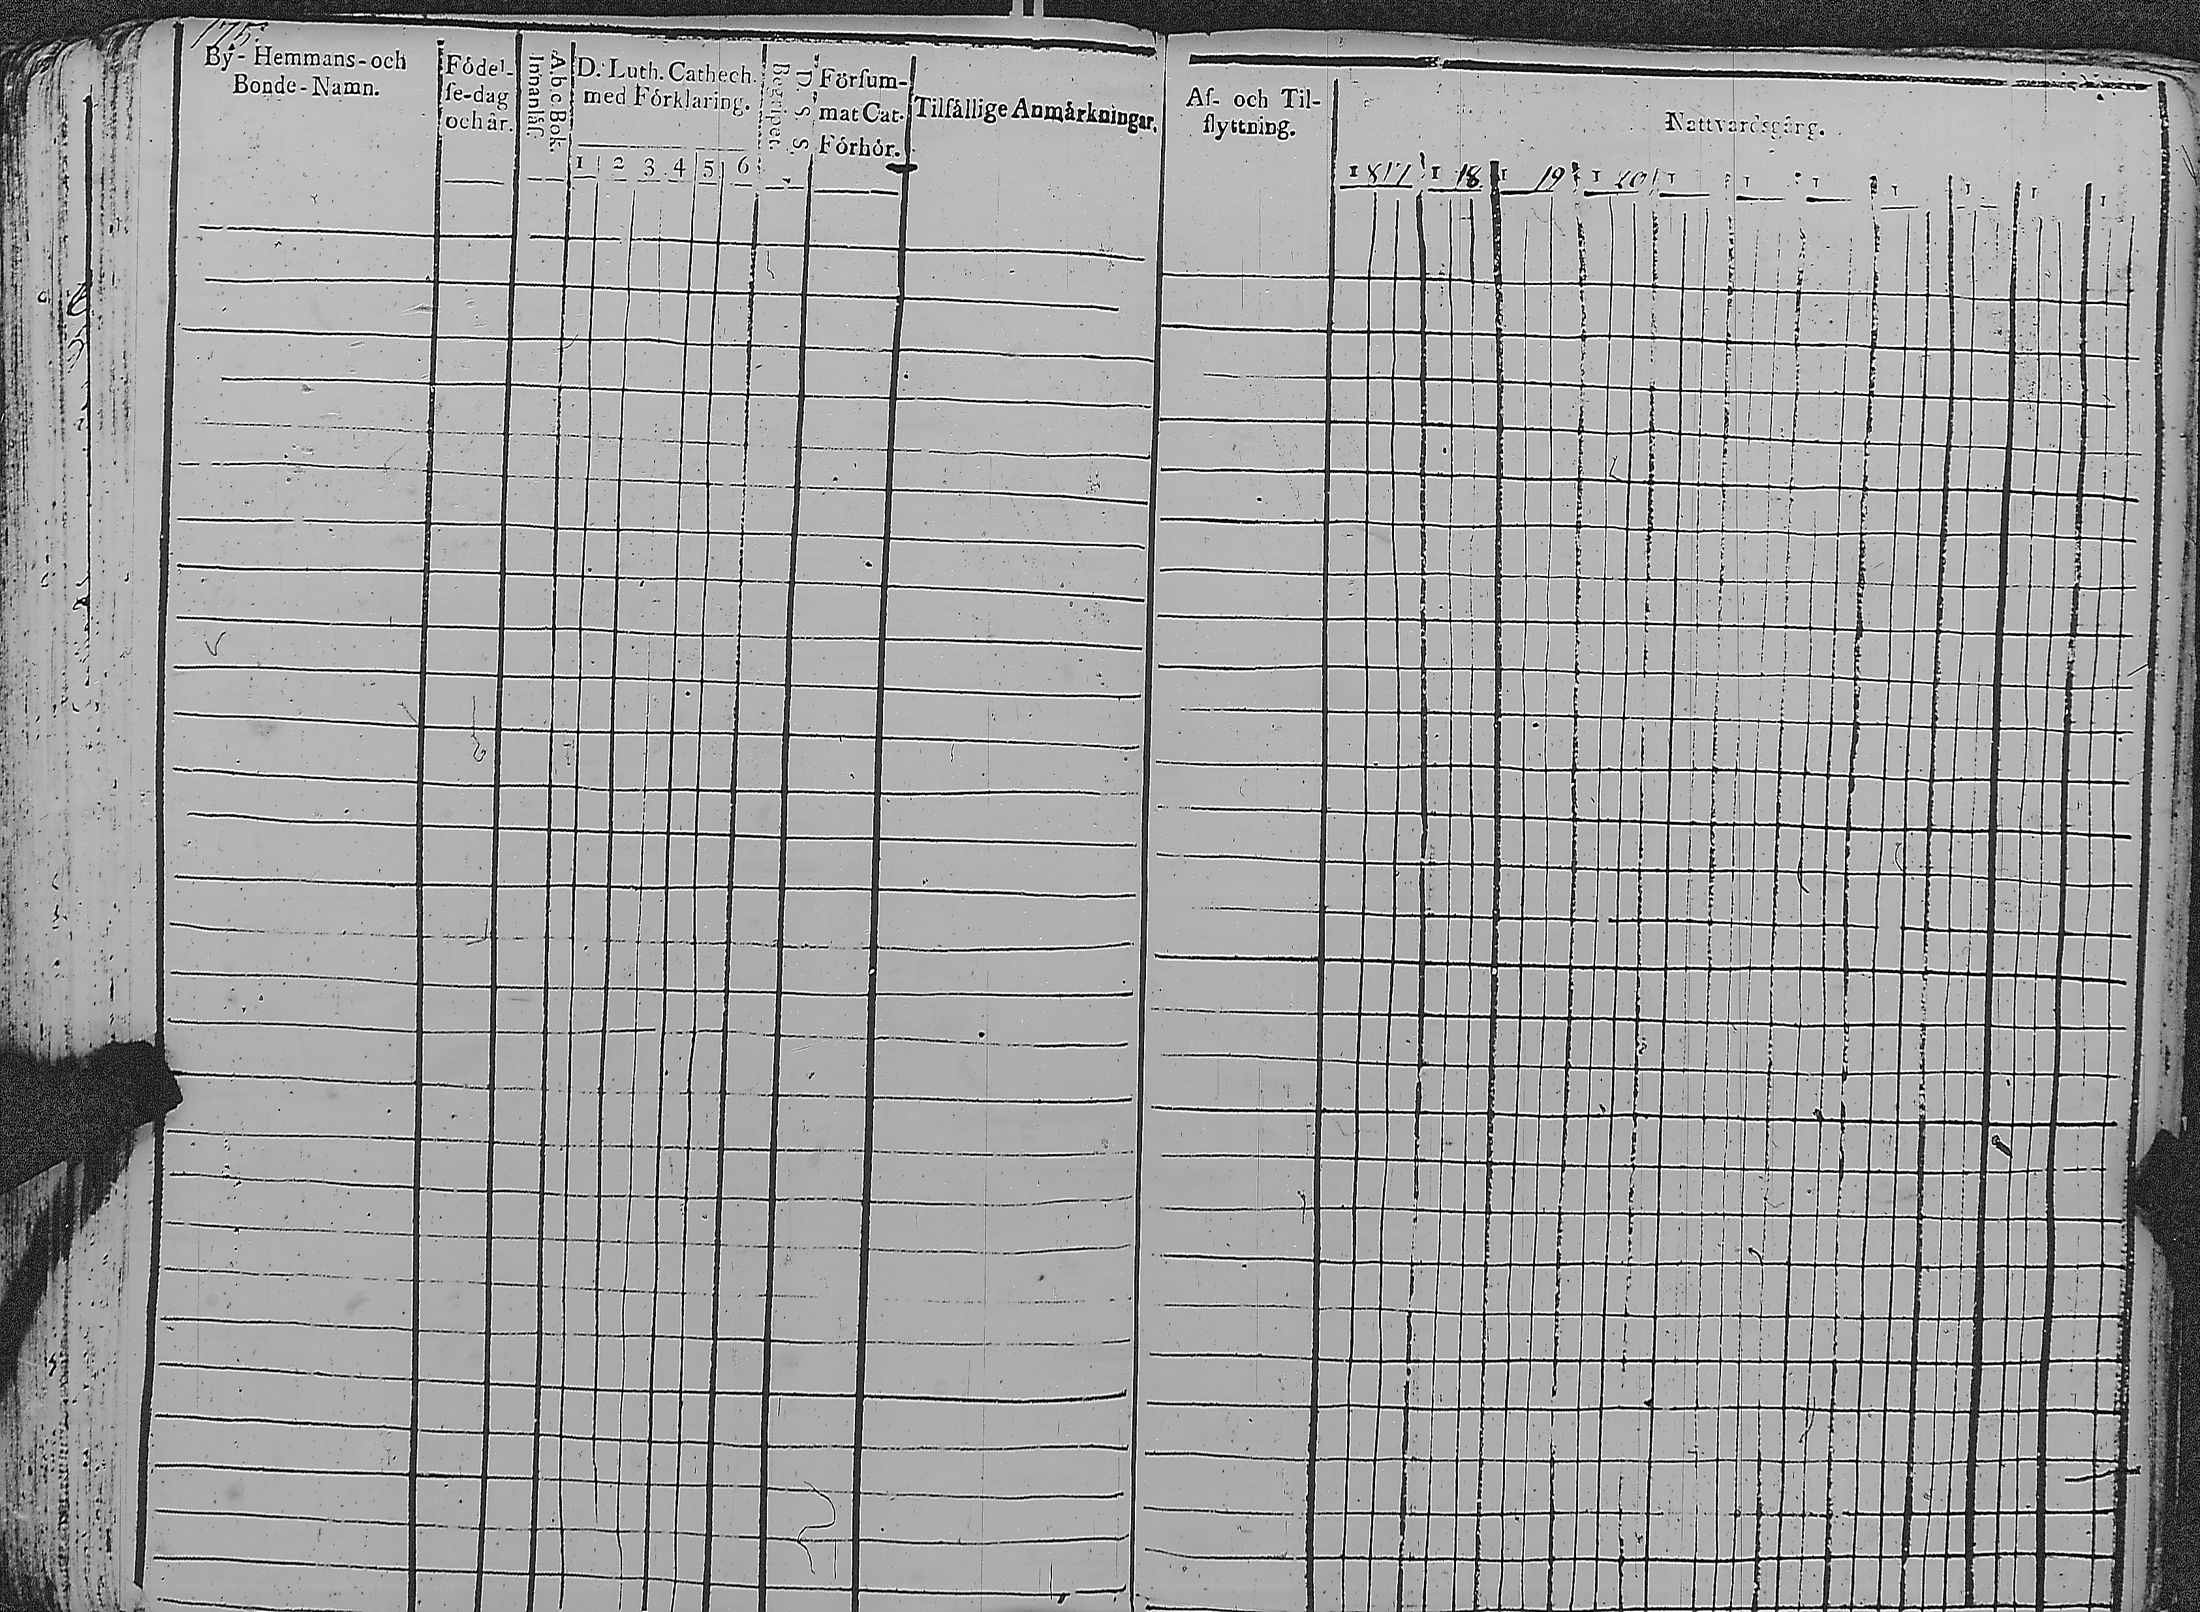 175.
By- Hemmans- och
Bonde-Namn.
Födel-
se-dag
och år.
Innanläs.
Abc Bok.
D. Luth. Cathech.
med Förklaring.
1 2 3 4 5 6
Begripet.
D. S. S.
Försum-
mat Cat.
Förhör.
Tilfällige Anmärkningar.
Af- och Til-
flyttning.
Nattvardsgång.
1817 1 18 1 19 1 20 1 1 1 1 1 1 1